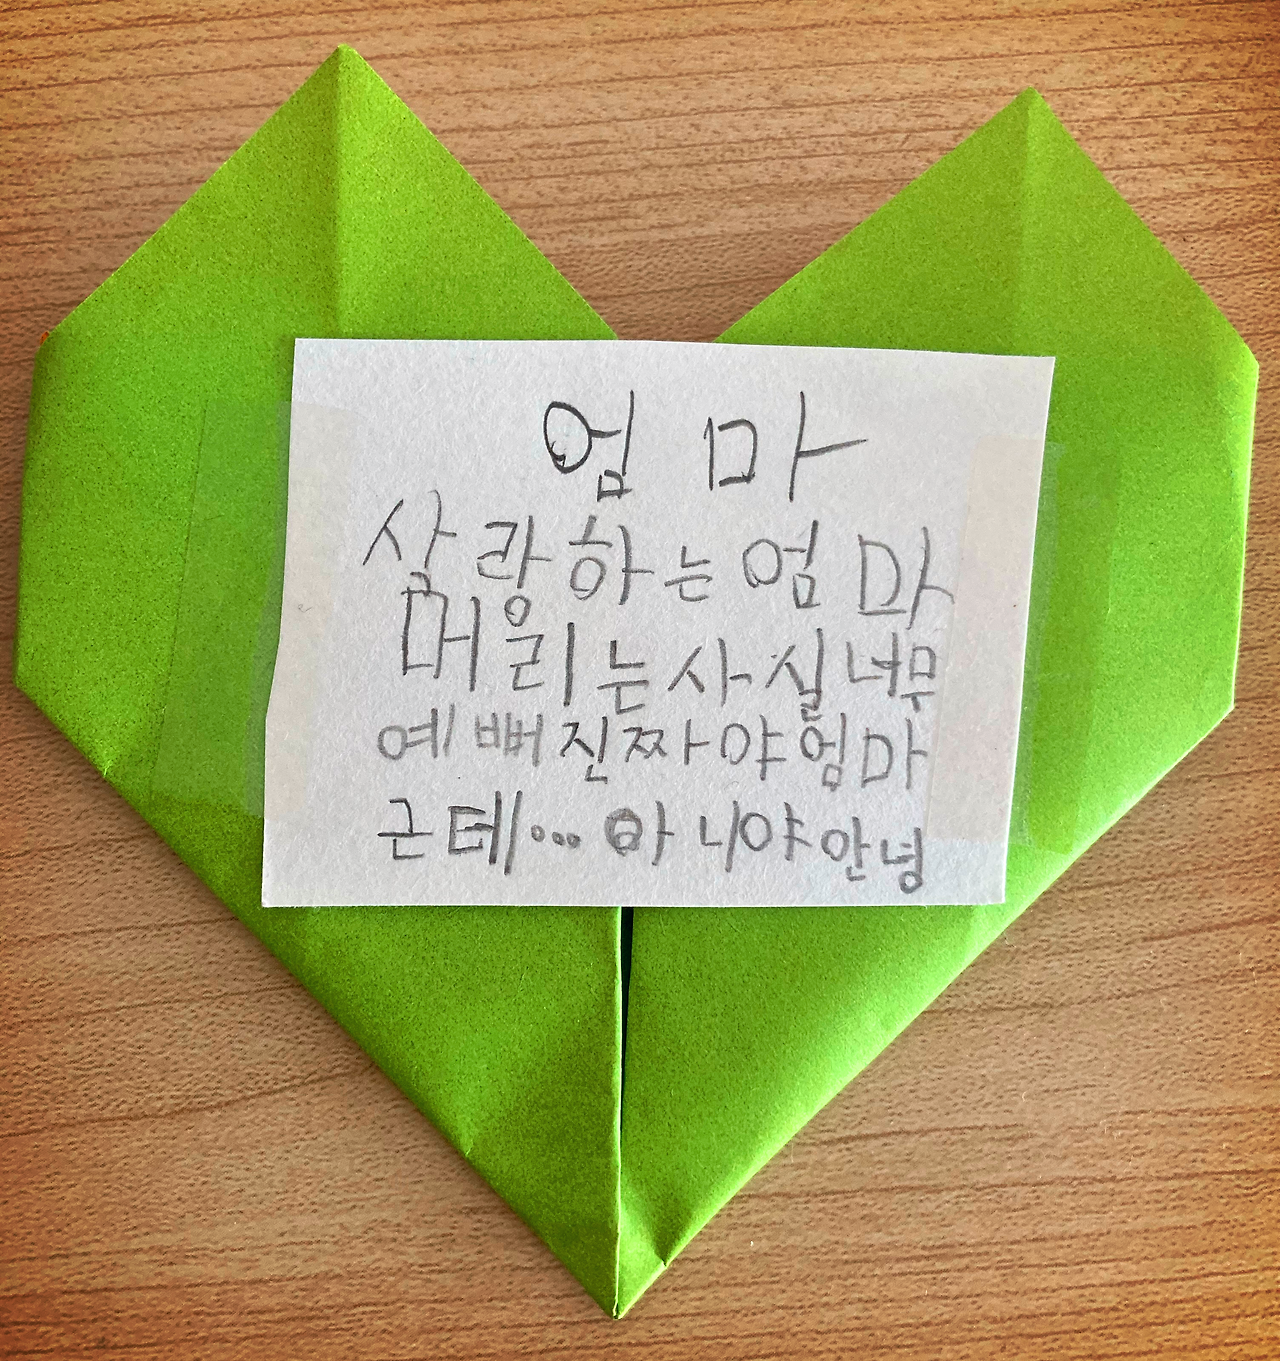 엄마
사랑하는엄마
머리는사실너무
예뻐진짜야엄마
근테...아니야안녕